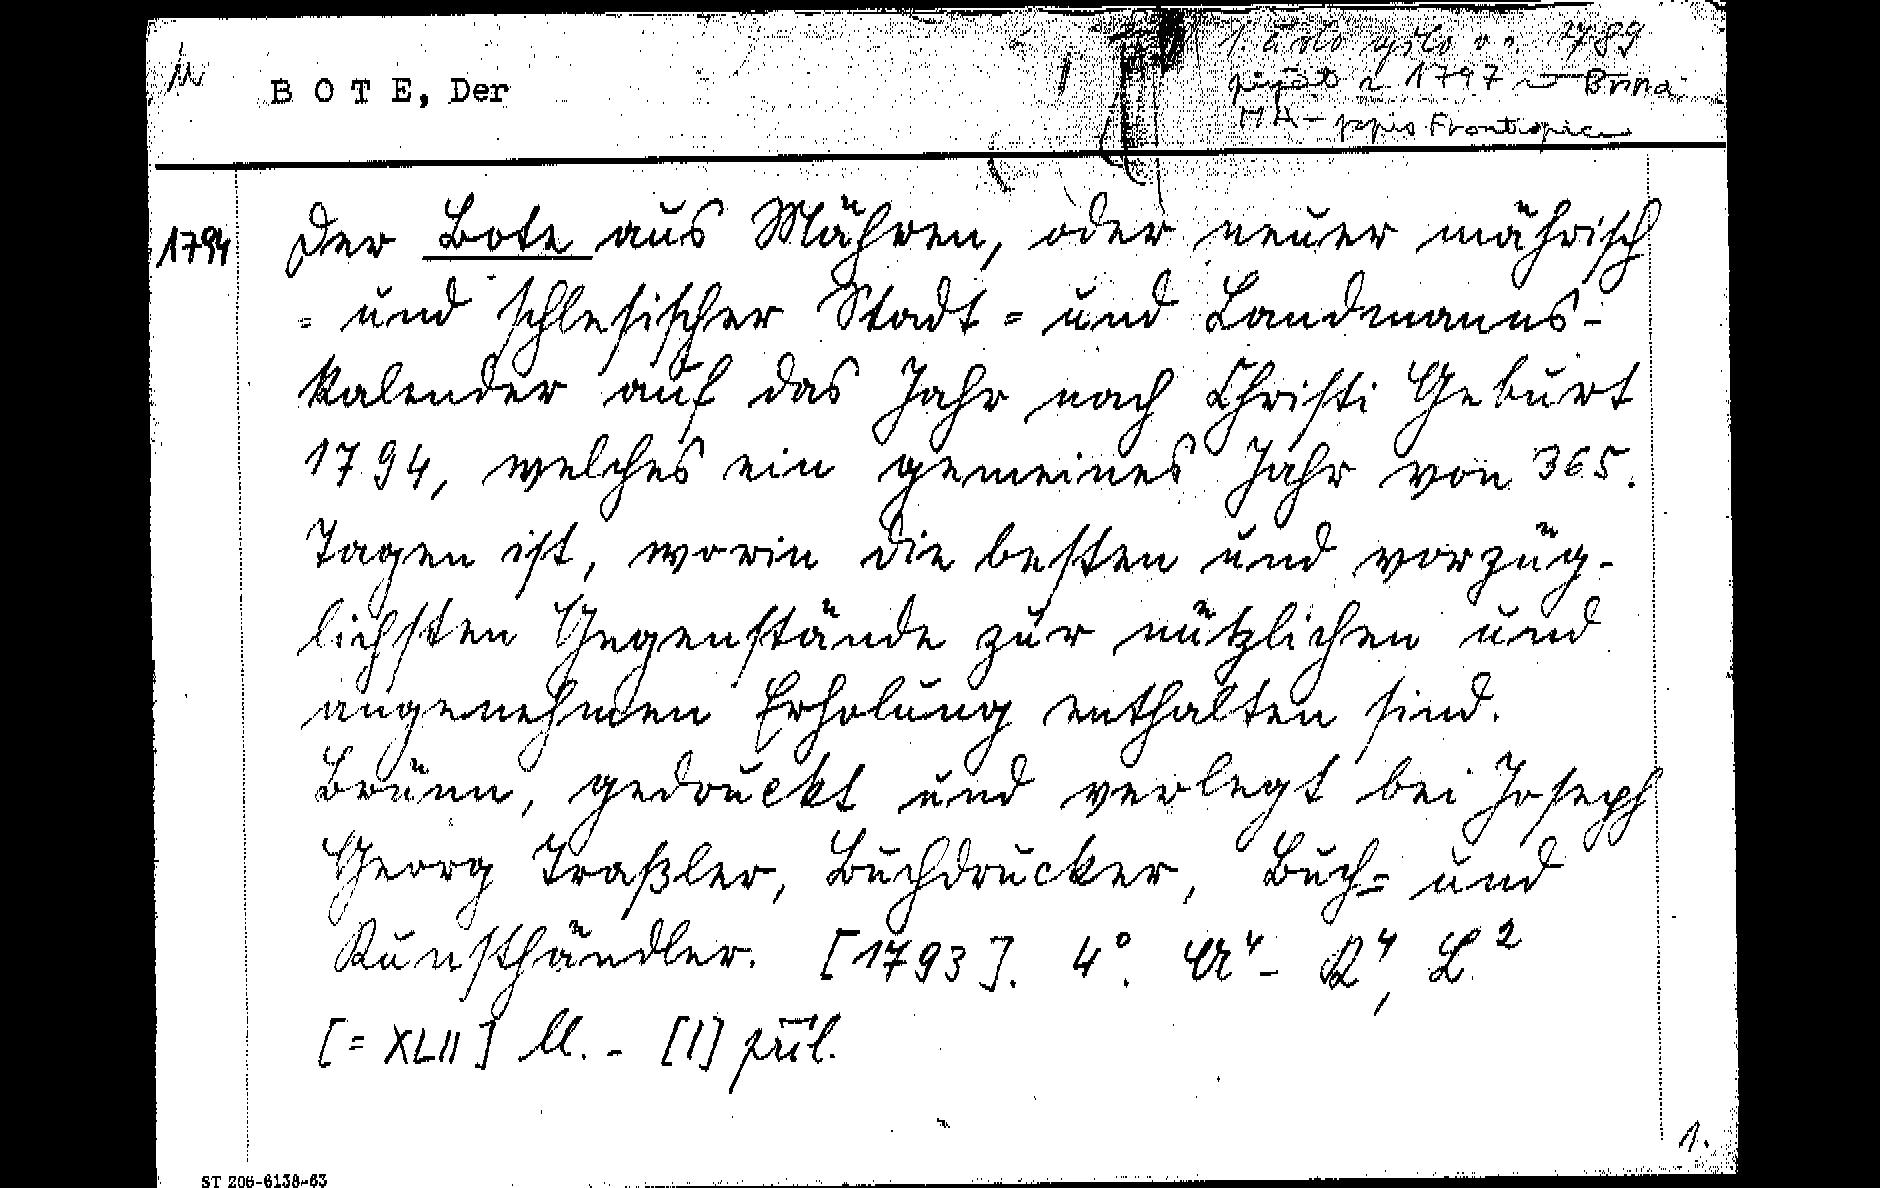 B O T E, Der
1789
1797 Brna
MA - popis Frontispice
1794
Der Bote aus Mähren, oder neuer mährisch
= und schlesischer Stadt = und Landmanns-
kalender auf das Jahr nach Christi Geburt
1794, welches ein gemeines Jahr von 365.
Tagen ist, worin die besten und vorzüg-
lichsten Gegenstände zur nützlichen und
angenehmen Erholung enthalten sind.
Brünn, gedruckt und verlegt bei Joseph
Georg Traßler, Buchdrucker, Buch= und
Kunsthändler. [1793]. 4°. A⁴- K⁴, L²
[= XLII] ll. - [1] příl.
1.
ST 206-6138-63